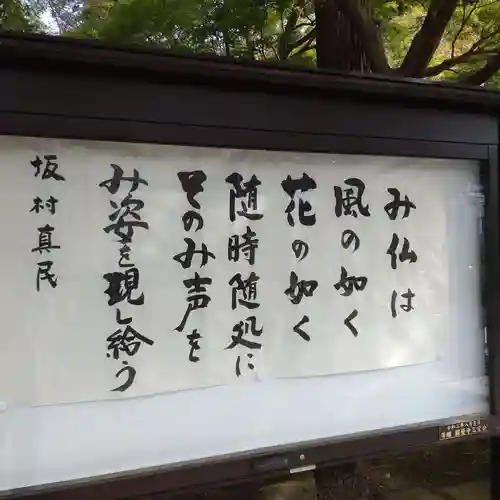 み仏は
風の如く
花の如く
随時随処に
そのみ声を
み姿を現し給う
坂村真民